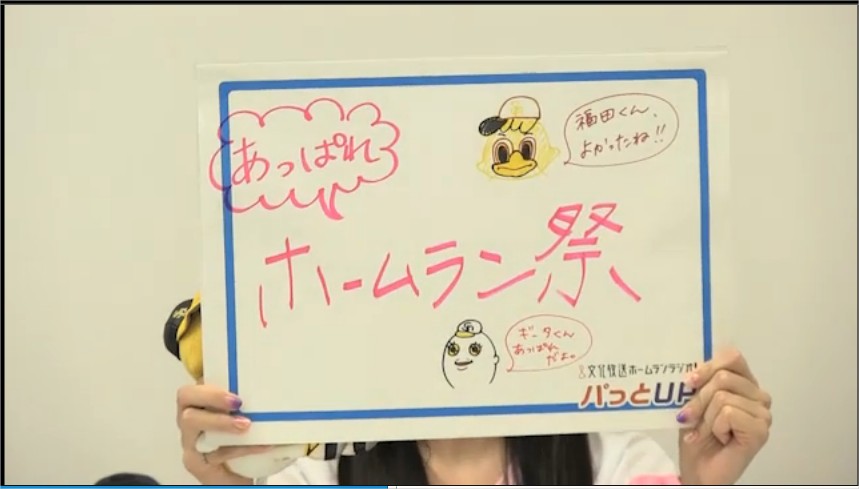 あっぱれ
福田くん、
よかったね!!
ホームラン祭
ギータくん
あっぱれ
だよ。
文化放送ホームランラジオ!
パっとUP